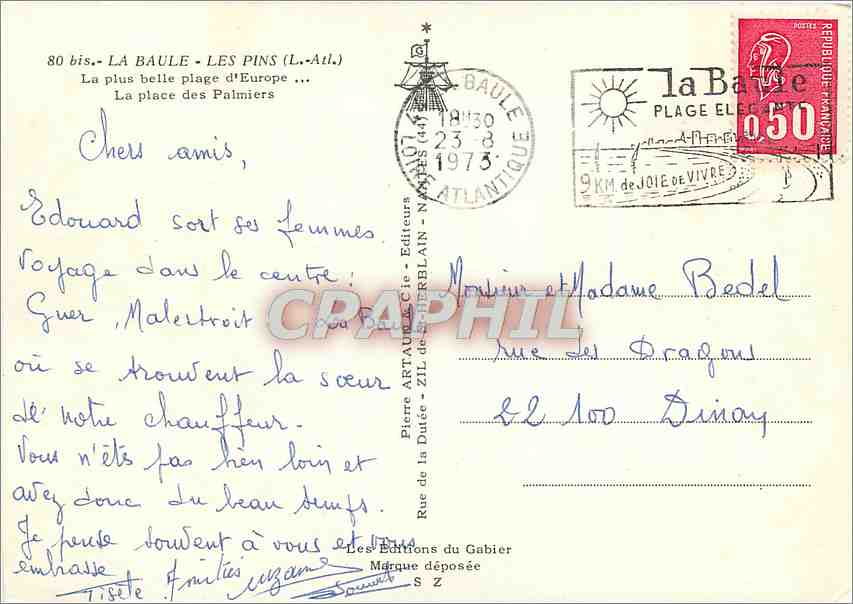 80 bis.- LA BAULE - LES PINS (L.-Atl.)
La plus belle plage d'Europe ...
La place des Palmiers
Chers amis,
Edouard sort ses femmes.
Voyage dans le centre :
Guer, Malestroit La Baule
où se trouvent la sœur
de notre chauffeur.
Vous n'êtes pas bien loin et
avez donc du beau temps.
Je pense souvent à vous et vous
embrasse
Amitiés Suzanne
Pierre ARTAUD & Cie - Editeurs
Rue de la Dutée - ZIL de St-HERBLAIN - NANTES (44)
Les Editions du Gabier
Marque déposée
S Z
CPAPHIL
LA BAULE
18H30
23-8
1973
LOIRE ATLANTIQUE
la Baule
PLAGE ELEGANTE
9 KM. de JOIE DE VIVRE
POSTES
REPUBLIQUE FRANCAISE
0,50
Monsieur et Madame Bedel
rue des Dragons
22 100 Dinan